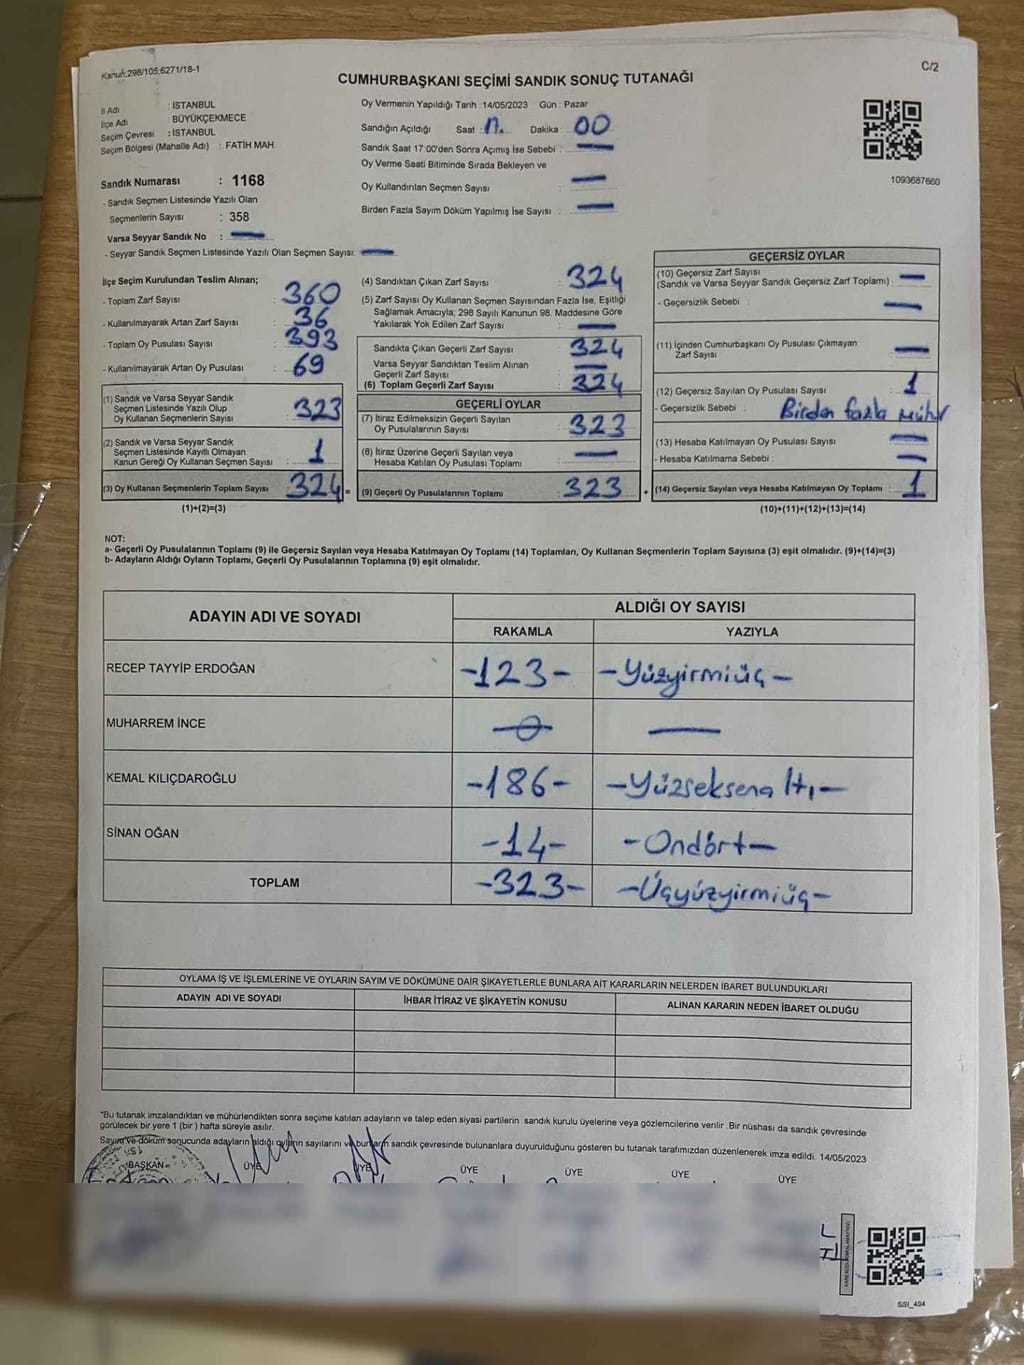 Kanun;298/105;6271/18-1
C/2
CUMHURBAŞKANI SEÇİMİ SANDIK SONUÇ TUTANAĞI
İl Adı : İSTANBUL
İlçe Adı : BÜYÜKÇEKMECE
Seçim Çevresi : İSTANBUL
Seçim Bölgesi (Mahalle Adı) : FATİH MAH.
Sandık Numarası : 1168
- Sandık Seçmen Listesinde Yazılı Olan
Seçmenlerin Sayısı : 358
Varsa Seyyar Sandık No : —
- Seyyar Sandık Seçmen Listesinde Yazılı Olan Seçmen Sayısı: —
Oy Vermenin Yapıldığı Tarih :14/05/2023 Gün : Pazar
Sandığın Açıldığı Saat : 17. Dakika : 00
Sandık Saat 17:00'den Sonra Açımış İse Sebebi : —
Oy Verme Saati Bitiminde Sırada Bekleyen ve
Oy Kullandırılan Seçmen Sayısı : —
Birden Fazla Sayım Döküm Yapılmış İse Sayısı : —
1093687660
İlçe Seçim Kurulundan Teslim Alınan;
- Toplam Zarf Sayısı : 360
- Kullanılmayarak Artan Zarf Sayısı : 36
- Toplam Oy Pusulası Sayısı : 393
- Kullanılmayarak Artan Oy Pusulası : 69
(1) Sandık ve Varsa Seyyar Sandık
Seçmen Listesinde Yazılı Olup
Oy Kullanan Seçmenlerin Sayısı : 323
(2) Sandık ve Varsa Seyyar Sandık
Seçmen Listesinde Kayıtlı Olmayan
Kanun Gereği Oy Kullanan Seçmen Sayısı : 1
(3) Oy Kullanan Seçmenlerin Toplam Sayısı : 324 =
(1)+(2)=(3)
(4) Sandıktan Çıkan Zarf Sayısı : 324
(5) Zarf Sayısı Oy Kullanan Seçmen Sayısından Fazla İse, Eşitliği
Sağlamak Amacıyla; 298 Sayılı Kanunun 98. Maddesine Göre
Yakılarak Yok Edilen Zarf Sayısı : —
Sandıkta Çıkan Geçerli Zarf Sayısı : 324
Varsa Seyyar Sandıktan Teslim Alınan
Geçerli Zarf Sayısı : —
(6) Toplam Geçerli Zarf Sayısı : 324
GEÇERLİ OYLAR
(7) İtiraz Edilmeksizin Geçerli Sayılan
Oy Pusulalarının Sayısı : 323
(8) İtiraz Üzerine Geçerli Sayılan veya
Hesaba Katılan Oy Pusulası Toplamı : —
(9) Geçerli Oy Pusulalarının Toplamı : 323 +
GEÇERSİZ OYLAR
(10) Geçersiz Zarf Sayısı
(Sandık ve Varsa Seyyar Sandık Geçersiz Zarf Toplamı) : —
- Geçersizlik Sebebi : —
(11) İçinden Cumhurbaşkanı Oy Pusulası Çıkmayan
Zarf Sayısı : —
(12) Geçersiz Sayılan Oy Pusulası Sayısı : 1
- Geçersizlik Sebebi : Birden fazla mühür
(13) Hesaba Katılmayan Oy Pusulası Sayısı : —
- Hesaba Katılmama Sebebi : —
(14) Geçersiz Sayılan veya Hesaba Katılmayan Oy Toplamı : 1
(10)+(11)+(12)+(13)=(14)
NOT:
a- Geçerli Oy Pusulalarının Toplamı (9) ile Geçersiz Sayılan veya Hesaba Katılmayan Oy Toplamı (14) Toplamları, Oy Kullanan Seçmenlerin Toplam Sayısına (3) eşit olmalıdır. (9)+(14)=(3)
b- Adayların Aldığı Oyların Toplamı, Geçerli Oy Pusulalarının Toplamına (9) eşit olmalıdır.
ADAYIN ADI VE SOYADI
ALDIĞI OY SAYISI
RAKAMLA YAZIYLA
RECEP TAYYİP ERDOĞAN -123- -Yüzyirmiüç-
MUHARREM İNCE -0- —
KEMAL KILIÇDAROĞLU -186- -Yüzseksenaltı-
SİNAN OĞAN -14- -Ondört-
TOPLAM -323- -Üçyüzyirmiüç-
OYLAMA İŞ VE İŞLEMLERİNE VE OYLARIN SAYIM VE DÖKÜMÜNE DAİR ŞİKAYETLERLE BUNLARA AİT KARARLARIN NELERDEN İBARET BULUNDUKLARI
ADAYIN ADI VE SOYADI İHBAR İTİRAZ VE ŞİKAYETİN KONUSU ALINAN KARARIN NEDEN İBARET OLDUĞU
*Bu tutanak imzalandıktan ve mühürlendikten sonra seçime katılan adayların ve talep eden siyasi partilerin sandık kurulu üyelerine veya gözlemcilerine verilir. Bir nüshası da sandık çevresinde
görülecek bir yere 1 (bir ) hafta süreyle asılır.
Sayım ve döküm sonucunda adayların aldığı oyların sayılarını ve bunların sandık çevresinde bulunanlara duyurulduğunu gösteren bu tutanak tarafımızdan düzenlenerek imza edildi. 14/05/2023
BAŞKAN ÜYE ÜYE ÜYE ÜYE ÜYE ÜYE
SSI_404